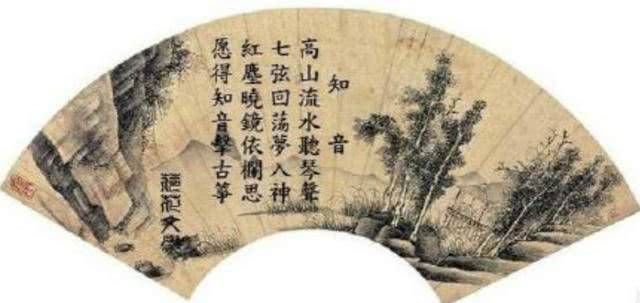 知音
高山流水聽琴聲
七弦回荡夢入神
紅塵曉鏡依欄思
愿得知音擊古筝